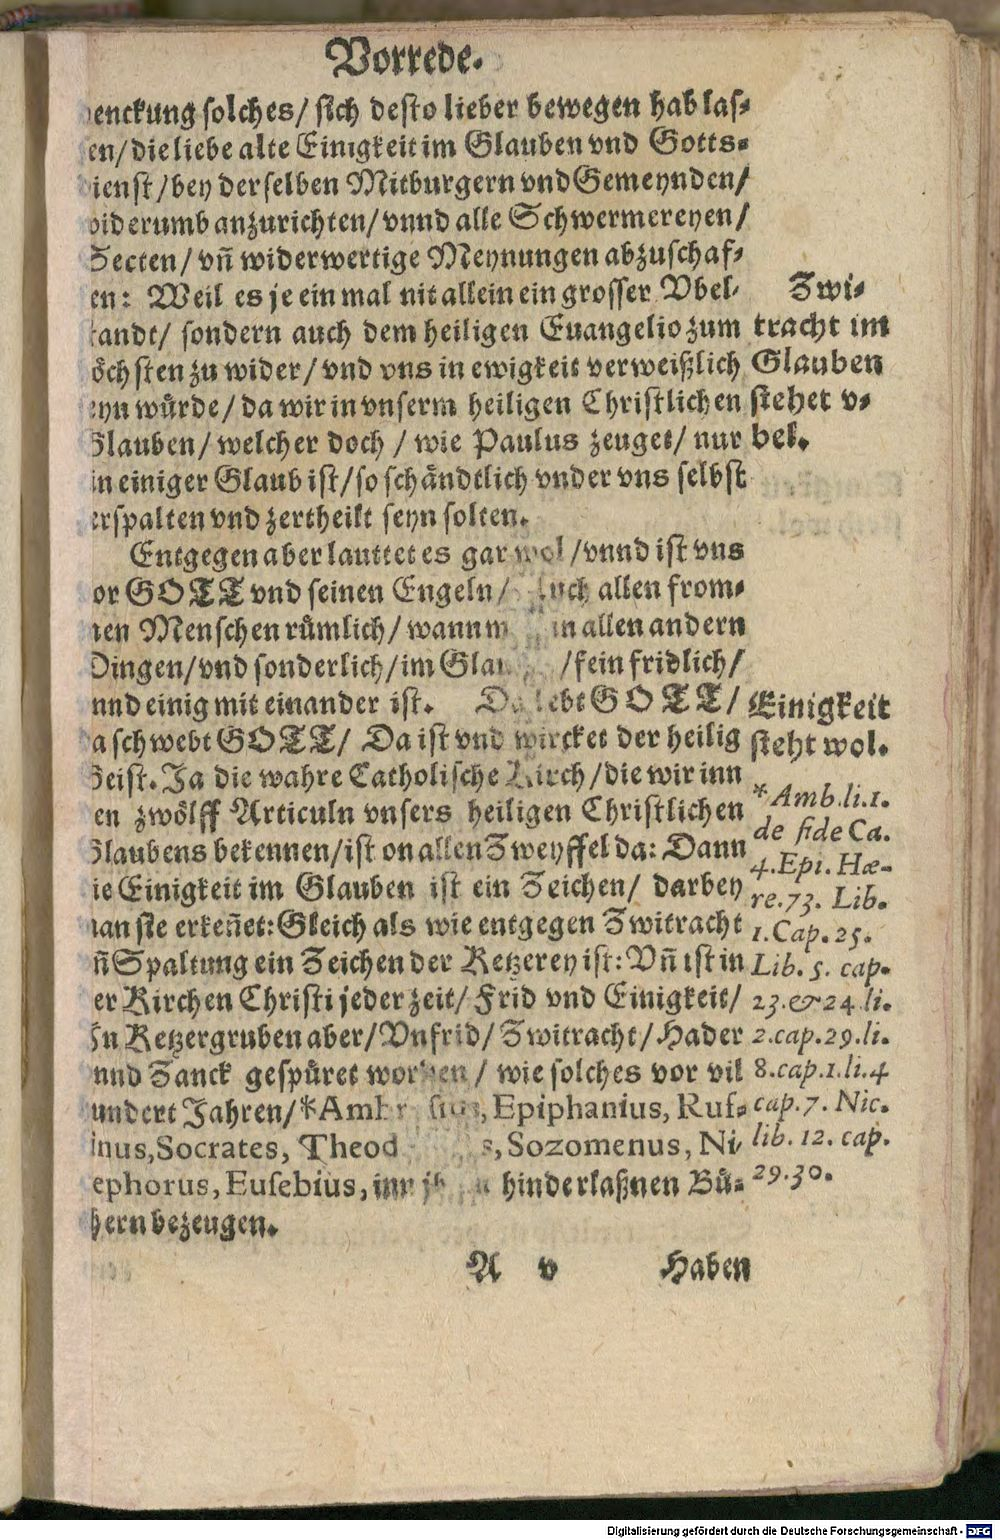 Vorrede.
enckung solches/ sich desto lieber bewegen hab las⸗
en/ die liebe alte Einigkeit im Glauben vnd Gotts⸗
ienst/ bey derselben Mitburgern vnd Gemeynden/
iderumb anzurichten/ vnnd alle Schwermereyen/
Secten/ vñ widerwertige Meynungen abzuschaf⸗
en: Weil es je ein mal nit allein ein grosser Vbel⸗
tandt/ sondern auch dem heiligen Euangelio zum
öchsten zu wider/ vnd vns in ewigkeit verweißlich
eyn würde/ da wir in vnserm heiligen Christlichen
Glauben/ welcher doch / wie Paulus zeuget/ nur
in einiger Glaub ist/ so schändtlich vnder vns selbst
erspalten vnd zertheilt seyn solten.
Zwi⸗
tracht im
Glauben
stehet v⸗
bel.
Entgegen aber lauttet es gar wol /vnnd ist vns
or GOTT vnd seinen Engeln/ Auch allen from⸗
nen Menschen rümlich/ wann m in allen andern
Dingen/ vnd sonderlich/ im Glau /fein fridlich/
nnd einig mit einander ist. Da lebt GOTT/
a schwebt GOTT/ Da ist vnd wircket der heilig
Geist. Ja die wahre Catholische Kirch/ die wir inn
en zwölff Articuln vnsers heiligen Christlichen
Glaubens bekennen/ ist on allen Zweyffel da: Dann
ie Einigkeit im Glauben ist ein Zeichen/ darbey
man sie erkeñet: Gleich als wie entgegen Zwitracht
ñ Spaltung ein Zeichen der Ketzerey ist: Vñ ist in
er Kirchen Christi jeder zeit/ Frid vnd Einigkeit/
In Ketzergruben aber/ Vnfrid/ Zwitracht/ Hader
nnd Zanck gespüret worden / wie solches vor vil
undert Jahren/ *Ambrosius, Epiphanius, Ruf⸗
inus, Socrates, Theod s, Sozomenus, Ni⸗
ephorus, Eusebius, inn jh n hinderlaßnen Bü⸗
hern bezeugen.
Einigkeit
steht wol.
* Amb. li. 1.
de fide Ca.
4. Epi. Hæ-
re. 73. Lib.
1. Cap. 25.
Lib. 5. cap.
23. & 24. li.
2. cap. 29. li.
8. cap. 1. li. 4
cap. 7. Nic.
lib. 12. cap.
29. 30.
A v Haben
Digitalisierung gefördert durch die Deutsche Forschungsgemeinschaft - DFG